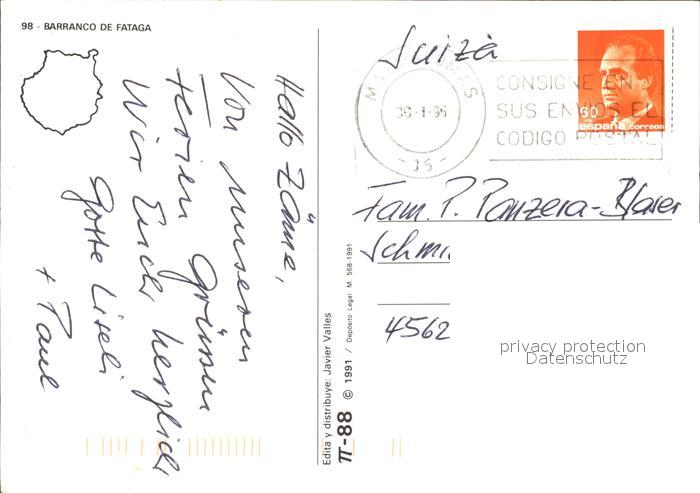 98 - BARRANCO DE FATAGA
Hallo Zäme,
Von unseren
Ferien grüssen
Wir Euch herzlich
Gotte Liseli
+ Paul
Edita y distribuye: Javier Valles
π-88 © 1991 / Depósito Legal: M. 568-1991
Suiza
MAS
30-1-96
- JS -
CONSIGNE EN
SUS ENVIOS EL
CODIGO POSTAL
60
españa correos
Fam. P. Panzera-Blaser
Schmi
4562
privacy protection
Datenschutz